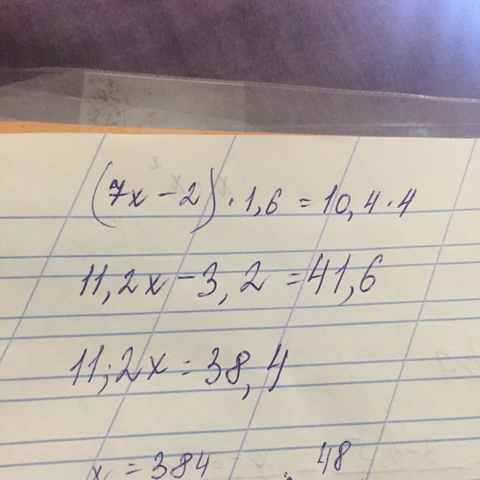 (7x - 2) · 1,6 = 10,4 · 4
11,2x - 3,2 = 41,6
11,2x = 38,4
x = 384 48